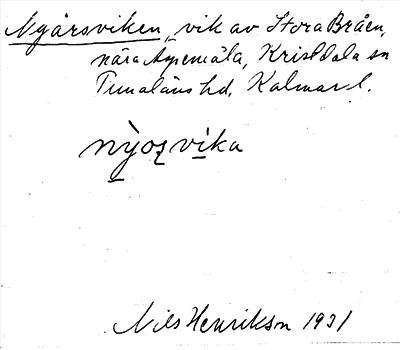 Nyårsviken, vik av Stora Bråen,
nära Aspemåla, Kristdala sn
Tunaläns hd, Kalmar l.
nỳoʒ víka
Nils Henrikson 1931